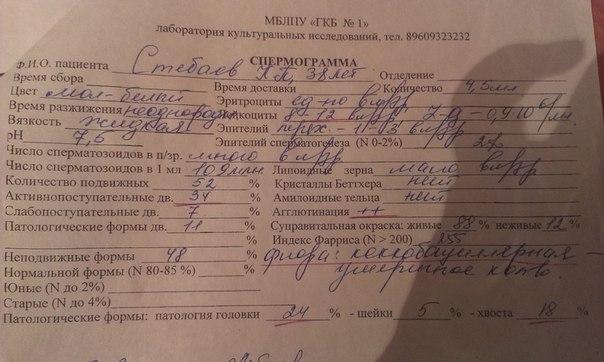 МБЛПУ «ГКБ № 1»
лаборатория культуральных исследований, тел. 89609323232
СПЕРМОГРАММА
Ф.И.О. пациента Стебаев 38 лет Отделение
Время сбора Время доставки Количество 4,5мл
Цвет мол-белый Эритроциты ед-но в п/зр
Время разжижения неоднород Лейкоциты 8-12 в п/зр
Вязкость жидкая Эпителий 11-13 в п/зр
pH 7,5 Эпителий сперматогенеза (N 0-2%) 2%
Число сперматозоидов в п/зр. много в п/зр Липоидные зерна мало в п/зр
Число сперматозоидов в 1 мл 109 млн Кристаллы Беттхера нет
Количество подвижных 52 % Амилоидные тельца нет
Активнопоступательные дв. 34 % Агглютинация ++
Слабопоступательные дв. 7 % Суправитальная окраска: живые 88 % неживые 12 %
Патологические формы дв. 11 Индекс Фарриса (N > 200) 255
Неподвижные формы 48 % флора: коккобациллярная -
Нормальной формы (N 80-85 %) % умеренное кол-во.
Юные (N до 2%)
Старые (N до 4%)
Патологические формы: патология головки 24 % - шейки 5 % - хвоста 18 %